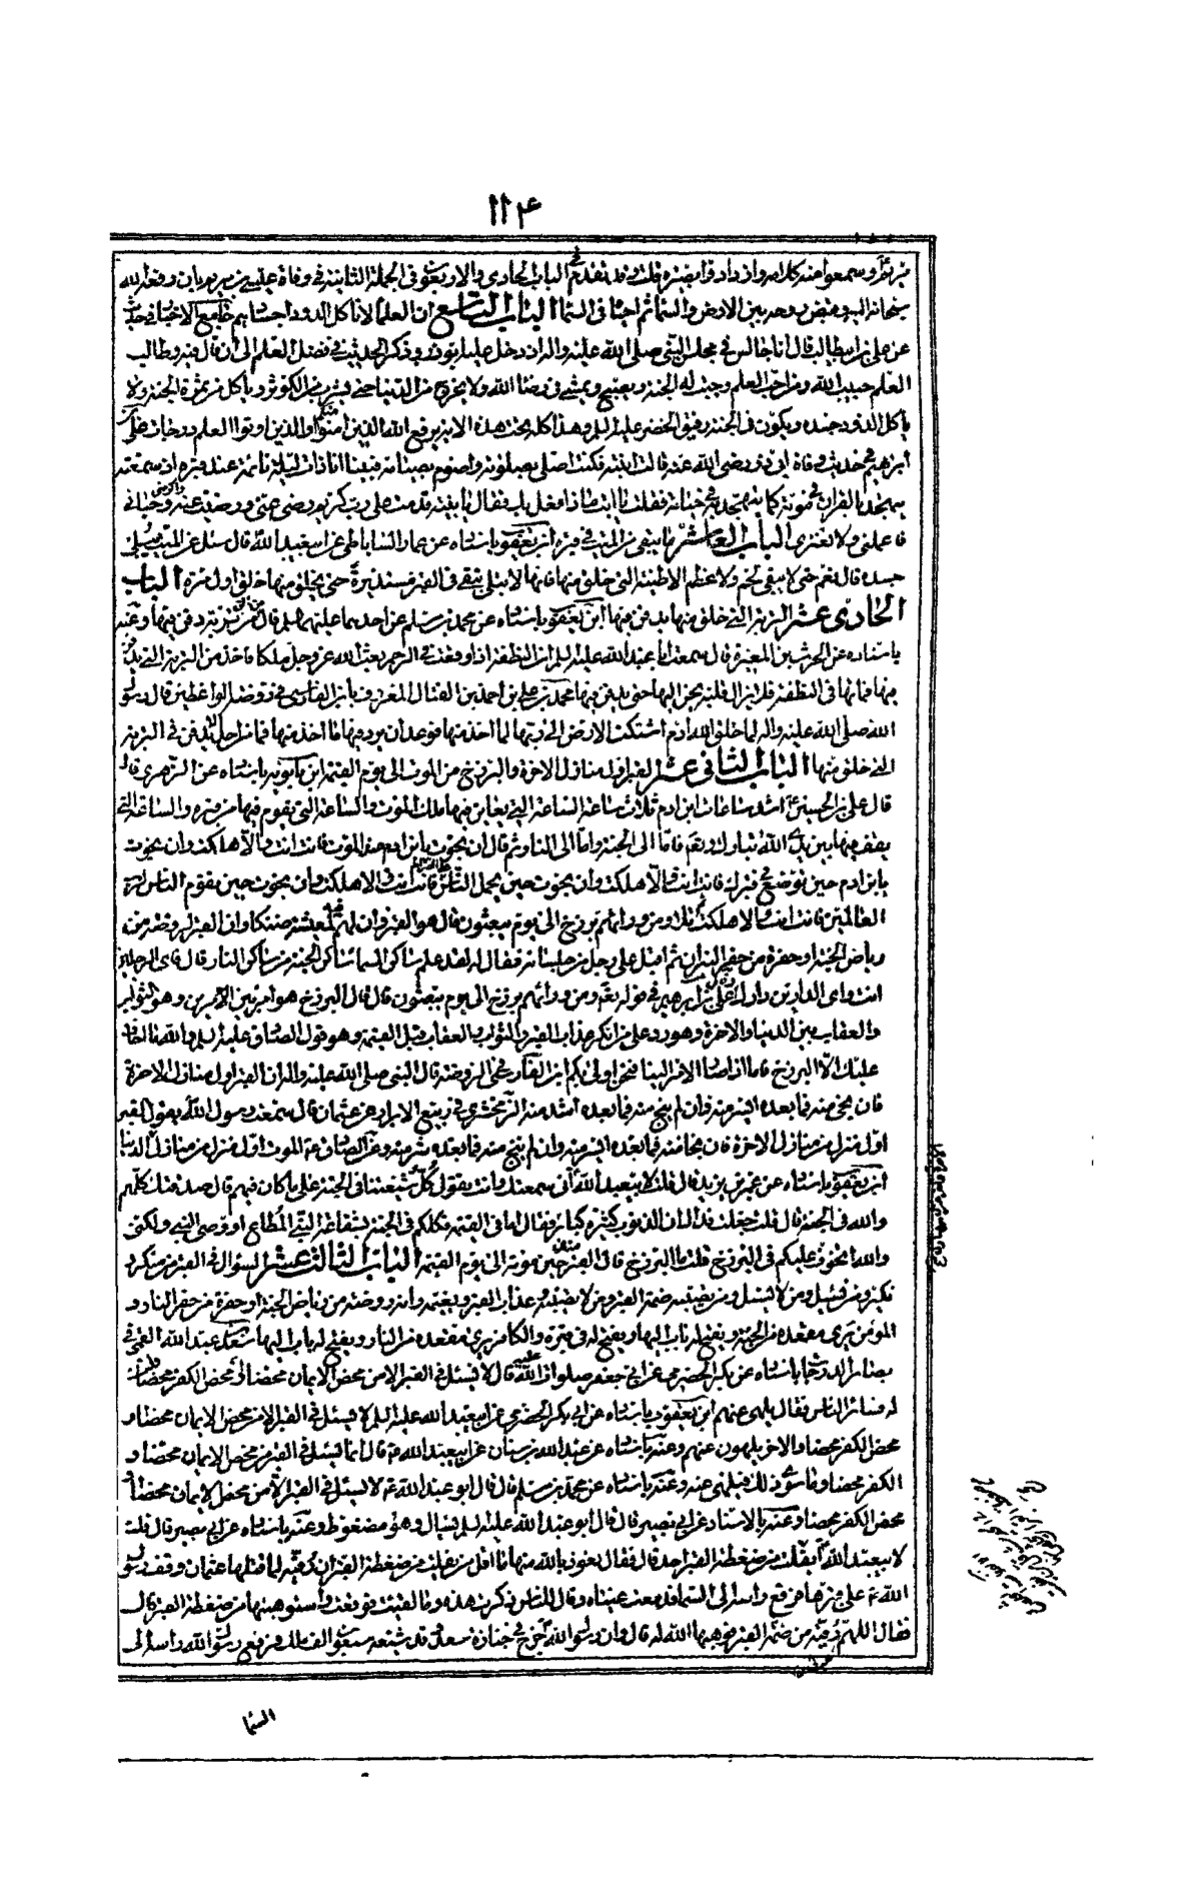 ١١٤
وسمعوا منه كلامه وازدادوا بصيرة قلت وقد تقدم في الباب الحادي والاربعين في الجملة الثانية في وفاة عيسى بن مريم بان رفعه الله
سبحانه اليه وقبض روحه بين الارض والسماء ثم احيا في السماء الباب التاسع ان العلماء لا تاكل الدود اجسامهم جامع الاخبار في حديث
عن علي بن ابيطالب قال انا جالس في مجلس النبي صلى الله عليه واله اذ دخل علينا ابو ذر وذكر الحديث في فضل العلم الى ان قال فيه وطالب
العلم حبيب الله ومن احب العلم وجبت له الجنة ويصبح ويمشي في رضا الله ولا يخرج من الدنيا حتى يشرب من الكوثر وياكل من ثمرة الجنة ولا
ياكل الدود جسده ويكون في الجنة رفيق الخضر عليه السلم وهذا كله تحت هذه الاية يرفع الله الذين امنوا منكم والذين اوتوا العلم درجات علي بن
ابرهيم في حديث وفاة ابي ذر رضي الله عنه قالت ابنته فكنت اصلي بصلوته واصوم بصيامه فبينا انا ذات ليلة نائمة عند قبره اذ سمعته
يتهجد بالقران في نومي كما يتهجد به في حياته فقلت يا ابت ماذا فعل بك ربك فقال يا بنية قدمت على رب كريم رضي عني ورضيت عنه واكرمني وحباني
فاعملي ولا تغتري الباب العاشر ما يبقى من الميت في قبره ابن يعقوب باسناده عن عمار الساباطي عن ابيعبد الله قال سئل عن الميت يبلى
جسده قال نعم حتى لا يبقى لحم ولا عظم الا طينته التي خلق منها فانها لا تبلى تبقى في القبر مستديرة حتى يخلق منها كما خلق اول مرة الباب
الحادي عشر التربة التي خلق منها يدفن فيها ابن يعقوب باسناده عن محمد بن مسلم عن احدهما عليهما السلم قال من خلق من تربة دفن فيها وعنه
باسناده عن الحرث بن المغيرة قال سمعت ابا عبد الله عليه السلم ان النطفة اذا وقعت في الرحم بعث الله عز وجل ملكا فاخذ من التربة التي يدفن
فيها فماثها في النطفة فلا يزال قلبه يحن اليها حتى يدفن فيها محمد بن علي بن احمد بن الفتال المعروف بابن الفارسي في روضة الواعظين قال رسول
الله صلى الله عليه واله لما خلق الله ادم اشتكت الارض الى ربها لما اخذ منها فوعدها ان يرد فيها ما اخذ منها فما من احد الا يدفن في التربة
التي خلق منها الباب الثاني عشر القبر اول منازل الاخرة والبرزخ من الموت الى يوم القيمة ابن بابويه باسناده عن الزهري قال
قال علي بن الحسين اشد ساعات ابن ادم ثلاث ساعات الساعة التي يعاين فيها ملك الموت والساعة التي يقوم فيها من قبره والساعة التي
يقف فيها بين يدي الله تبارك وتعالى فاما الى الجنة واما الى النار ثم قال ان نجوت يا ابن ادم عند الموت فانت انت والا هلكت وان نجوت
يابن ادم حين توضع في قبرك فانت انت والا هلكت وان نجوت حين يحمل الناس على الصراط فانت انت والا هلكت وان نجوت حين يقوم الناس لرب
العالمين فانت انت والا هلكت ثم تلا ومن ورائهم برزخ الى يوم يبعثون قال هو القبر وان لهم فيه لمعيشة ضنكا وان القبر لروضة من
رياض الجنة او حفرة من حفر النيران ثم اقبل على رجل من جلسائه فقال له لقد علم ساكن السماء ساكن الجنة من ساكن النار فاي الرجلين
انت واي الدارين دارك علي بن ابرهيم في قوله تعالى ومن ورائهم برزخ الى يوم يبعثون قال قال البرزخ هو امر بين الامرين وهو الثواب
والعقاب بين الدنيا والاخرة وهو رد على من انكر عذاب القبر والثواب والعقاب قبل القيمة وهو قول الصادق عليه السلم والله ما اخاف
عليكم الا البرزخ فاما اذا صار الامر الينا فنحن اولى بكم ابن الفارسي في الروضة قال النبي صلى الله عليه واله ان القبر اول منازل الاخرة
فان نجى منه فما بعده ايسر منه وان لم ينج منه فما بعده اشد منه الزمخشري في ربيع الابرار عن عثمان قال سمعت رسول الله يقول القبر
اول منزل من منازل الاخرة فان نجا منه فما بعده ايسر منه وان لم ينج منه فما بعده شر منه وعن الصادق الموت اول منزل من منازل
ابن يعقوب باسناده عن عمر بن يزيد قال قلت لابيعبد الله اني سمعتك وانت تقول كل شيعتنا في الجنة على ما كان فيهم قال صدقتك كلهم
والله في الجنة قال قلت جعلت فداك ان الذنوب كثيرة كبار فقال اما في القيمة فكلكم في الجنة بشفاعة النبي المطاع او وصي النبي ولكني
والله اتخوف عليكم في البرزخ قلت ما البرزخ قال القبر منذ حين موته الى يوم القيمة الباب الثالث عشر السؤال في القبر من منكر و
نكير ومن يسئل ومن لا يسئل ومن يصيبه ضمة القبر ومن لا يصيبه وعذاب القبر ونعيمه وانه روضة من رياض الجنة او حفرة من حفر النار و
المؤمن يرى مقعده من الجنة ويفتح له باب اليها ويفسح له في قبره والكافر يرى مقعده من النار ويفتح له باب اليها سعد بن عبد الله القمي في
بصائر الدرجات باسناده عن ابي بكر الحضرمي عن ابي جعفر صلوات الله عليه قال لا يسئل في القبر الا من محض الايمان محضا او محض الكفر محضا
له فسائر الناس فقال يلهى عنهم ابن يعقوب باسناده عن ابي بكر الحضرمي عن ابيعبد الله عليه السلم لا يسئل في القبر الا من محض الايمان محضا و
محض الكفر محضا والاخرون يلهون عنهم وعنه باسناده عن عبد الله بن سنان عن ابيعبد الله قال انما يسئل في القبر من محض الايمان محضا و
الكفر محضا وما سوى ذلك فيلهى عنه وعنه باسناده عن محمد بن مسلم قال قال ابو عبد الله لا يسئل في القبر الا من محض الايمان محضا او
محض الكفر محضا وعنه بالاسناد عن ابي بصير قال قال ابو عبد الله عليه السلم يسال وهو مضغوط وعنه باسناده عن ابي بصير قال قلت
لابيعبد الله ايفلت من ضغطة القبر احد قال فقال نعوذ بالله منها ما اقل من يفلت من ضغطة القبر ان رقية لما قتلها عثمان وقف رسول
الله على قبرها فرفع راسه الى السماء فدمعت عيناه وقال للناس ذكرت هذه وما لقيت فرققت واستوهبتها من ضغطة القبر قال
فقال اللهم رقية من ضمة القبر فوهبها الله له قال وان رسول الله خرج في جنازة سعد وقد شيعه سبعون الف ملك فرفع رسول الله راسه الى
السماء